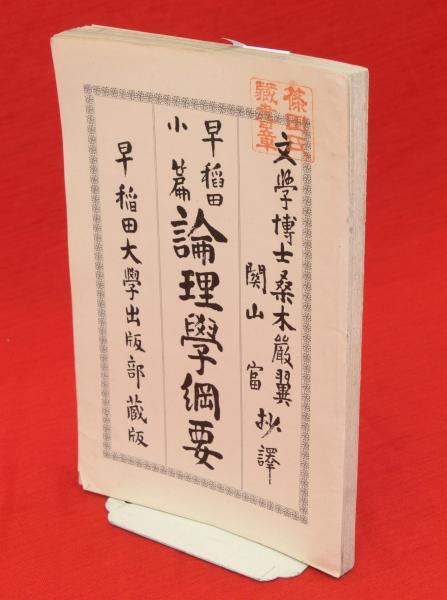 文学博士桑木嚴翼
関山富 抄譯
早稻田
小篇
論理學綱要
早稻田大學出版部蔵版
藏書章